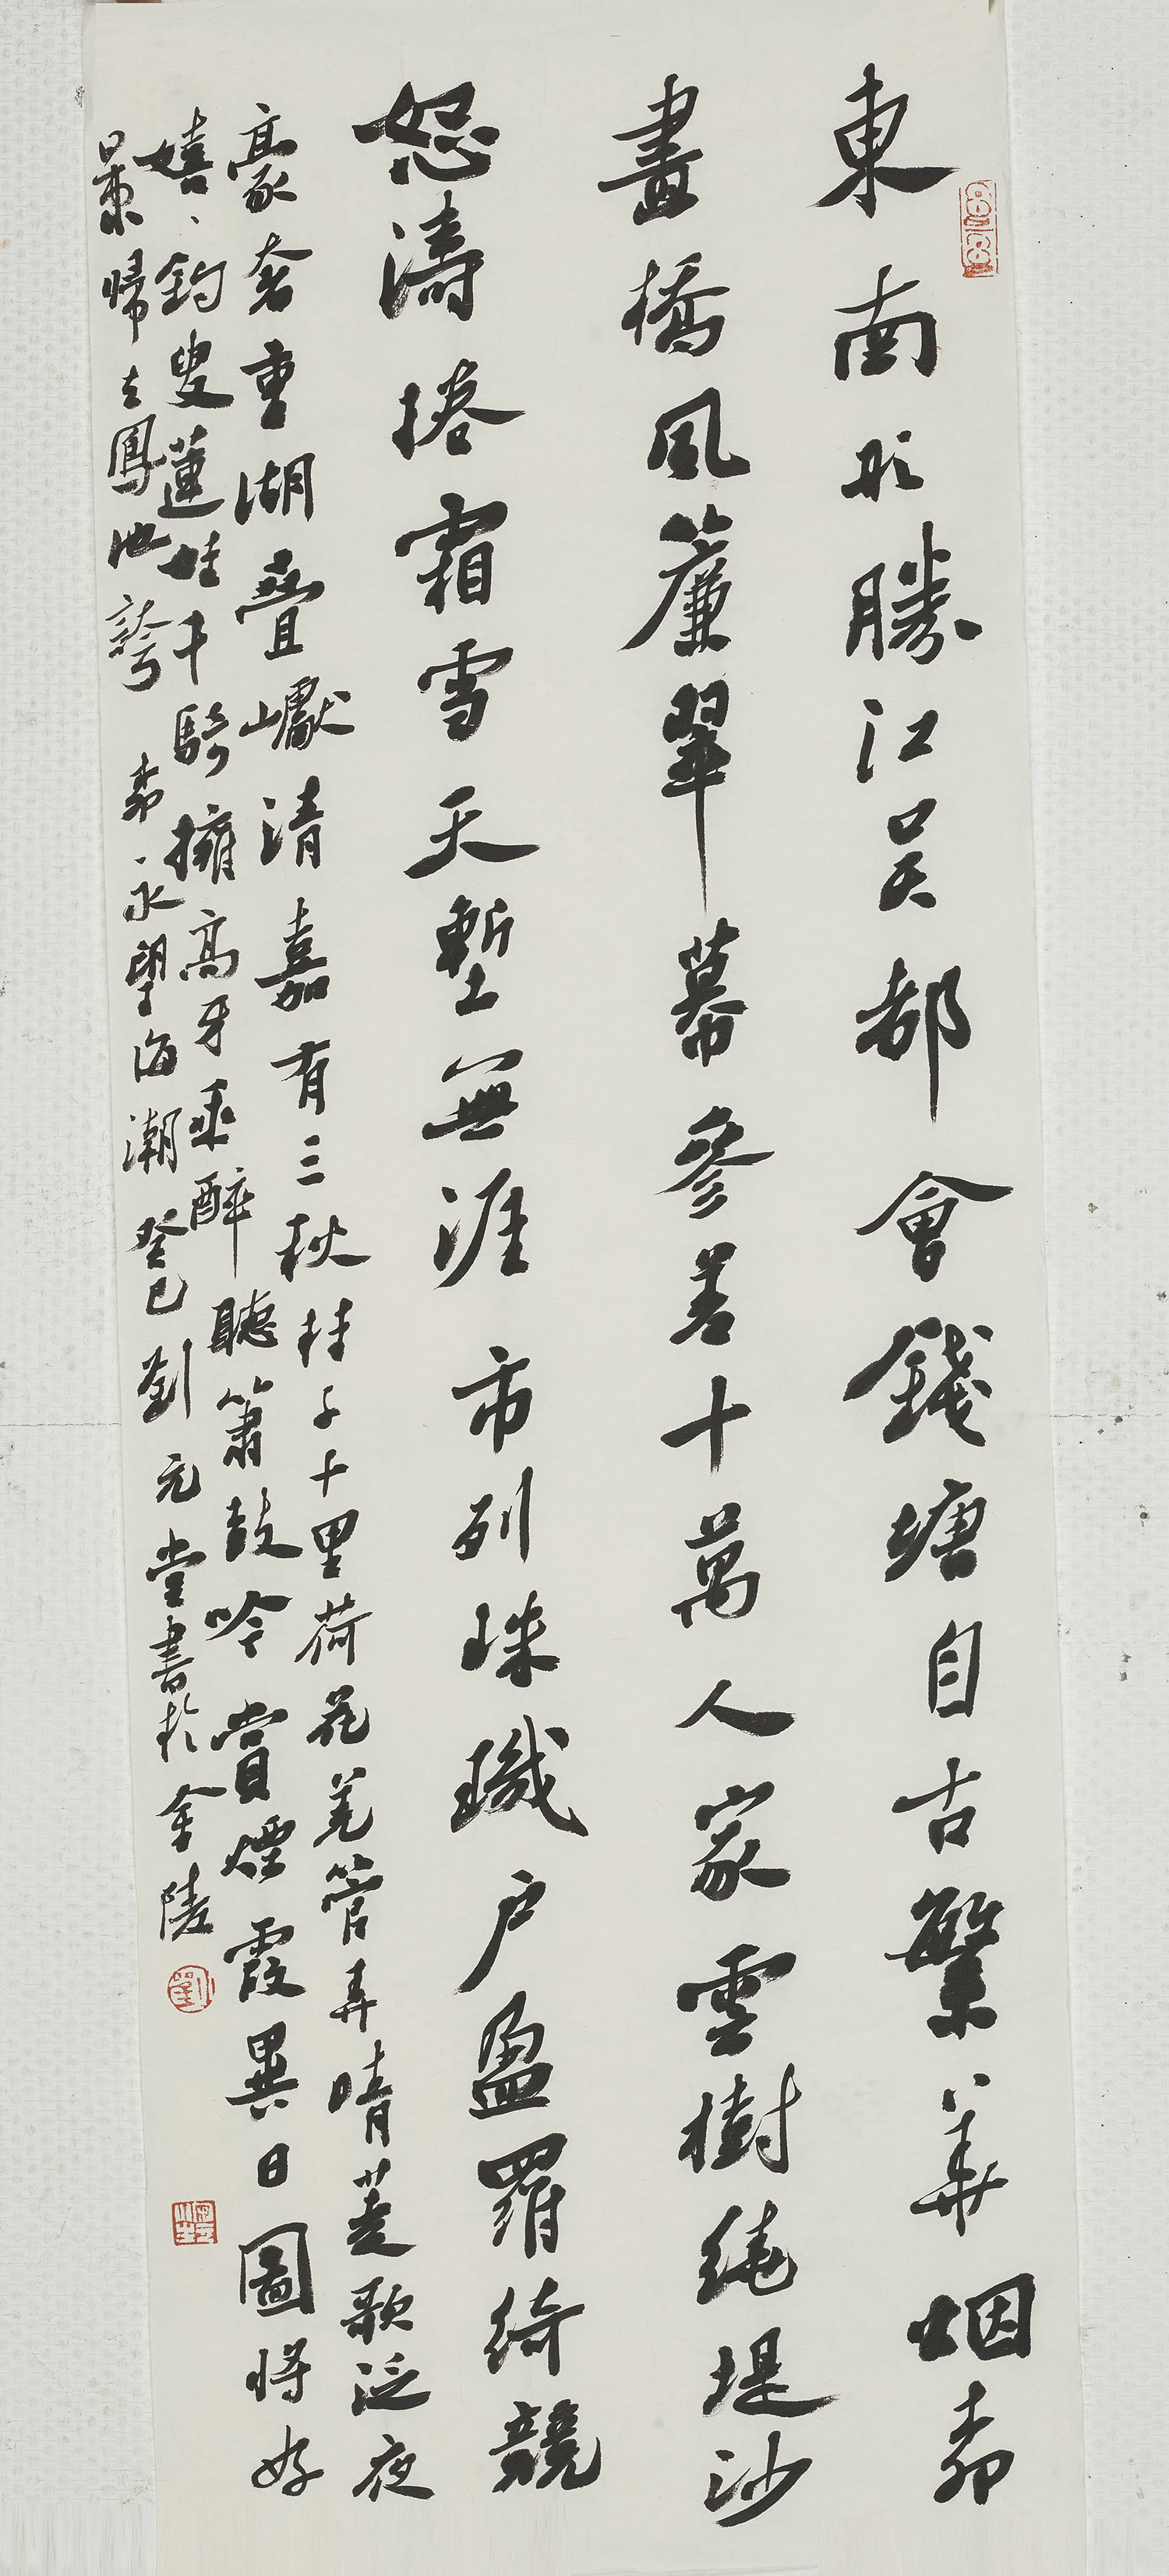 東南形勝江吴都會錢塘自古繁華烟柳
畫橋風簾翠幕參差十萬人家雲樹繞堤沙
怒濤捲霜雪天塹無涯市列珠璣户盈羅綺競
豪奢重湖疊巘清嘉有三秋桂子十里荷花羌管弄晴菱歌泛夜
嬉、釣叟蓮娃千騎擁高牙乘醉聽簫鼓吟賞煙霞異日圖將好
景歸去鳳池誇 柳永望海潮 癸巳劉元堂書於金陵
劉